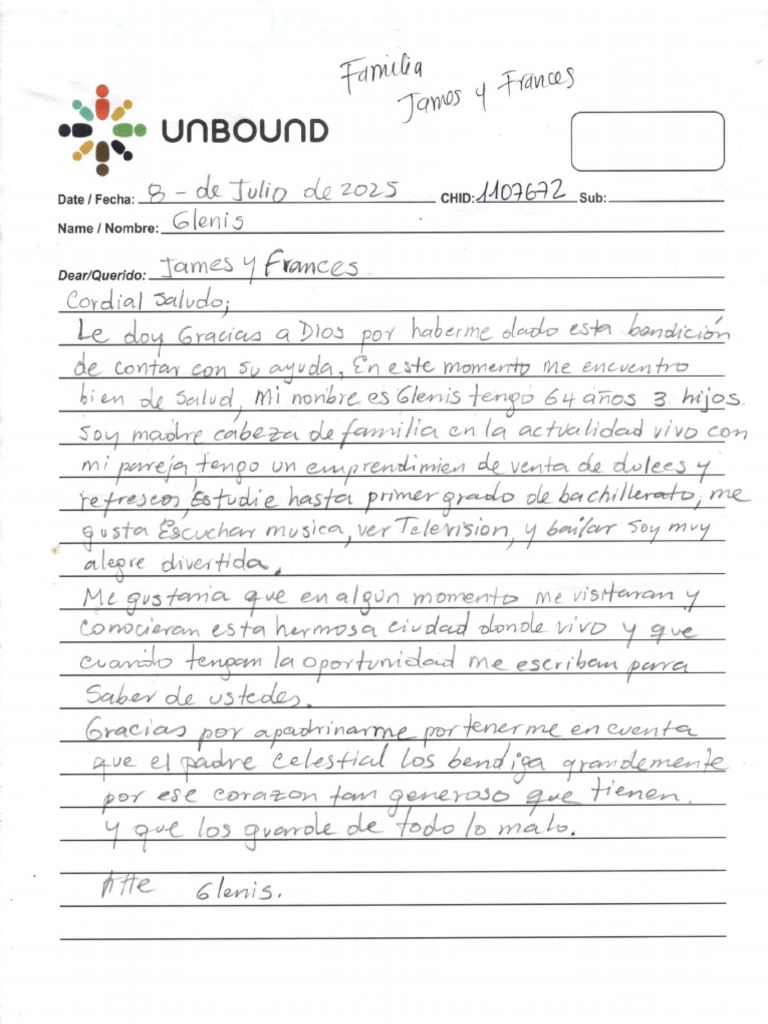 Familia
James y Frances
UNBOUND
Date / Fecha: 8 - de Julio de 2025 CHID: 1107672 Sub:
Name / Nombre: Glenis
Dear/Querido: James y Frances.
Cordial Saludo;
Le doy Gracias a Dios por haberme dado esta bendición
de contar con su ayuda, En este momento me encuentro
bien de Salud, Mi nonbre es Glenis tengo 64 años 3 hijos.
Soy madre cabeza de familia en la actualidad vivo con
mi pareja, tengo un emprendimien de venta de dulces y
refrescos, Estudie hasta primer grado de bachillerato, me
gusta Escuchar musica, ver Television, y bailar soy muy
alegre divertida.
Me gustaria que en algun momento me visitaran y
conocieran esta hermosa ciudad donde vivo y que
cuando tengan la oportunidad me escriban para
Saber de ustedes.
Gracias por apadrinarme por tenerme en cuenta
que el padre Celestial los bendiga grandemente
por ese corazon tan generoso que tienen.
Y que los guarde de todo lo malo.
Atte Glenis.